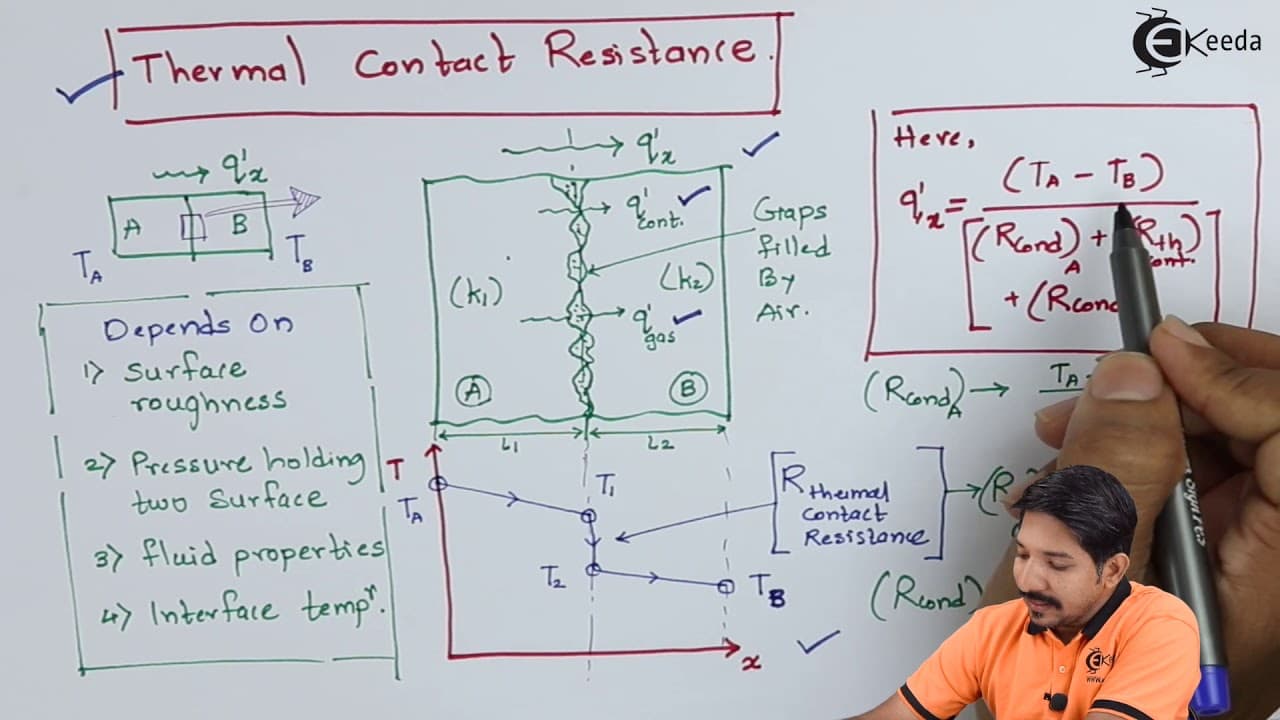 Thermal Contact Resistance.
EKeeda
q'x
A B
TA TB
Depends On
1) Surface
roughness
2) Pressure holding
two Surface
3) fluid properties
4) Interface tempr.
q'x
q'cont.
(k1) (k2)
q'gas
A B
L1 L2
Graps
filled
By
Air.
T
TA
T1
T2
TB
x
Rthermal
Contact
Resistance
Here,
q'x = (TA - TB)
[(Rcond)A + (Rth)cont.
+ (Rcond
(Rcond)A → TA -
→ (R
(Rcond)